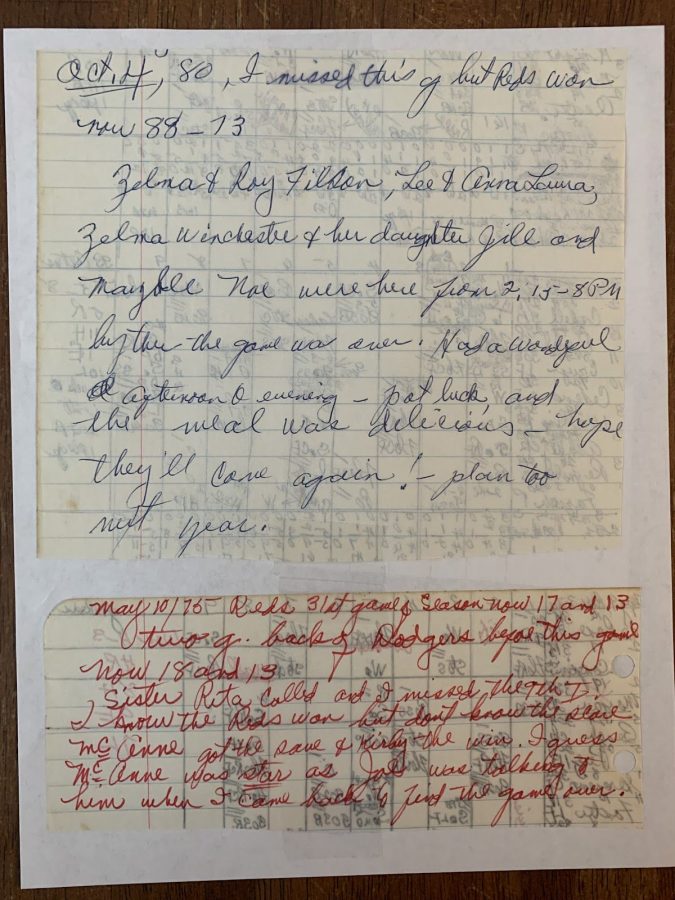 Oct. 4, 80, I missed this g but Reds won
now 88-73
Zelma & Roy Filson, Lee & Anna Laura,
Zelma Winchester & her daughter Jill and
Maybelle Noe were here from 2:15-8PM
by then the game was over. Had a wonderful
afternoon & evening - pot luck, and
the meal was delicious - hope
they'll come again! - plan too
next year.
May 10/75 Reds 31st game, Season now 17 and 13
two g. back of Dodgers before this game
now 18 and 13
Sister Rita called and I missed the 9th I
I know the Reds won but don't know the score
McAnne got the save & Kirby the win. I guess
McAnne was star as Joe was talking to
him when I came back to find the game over.